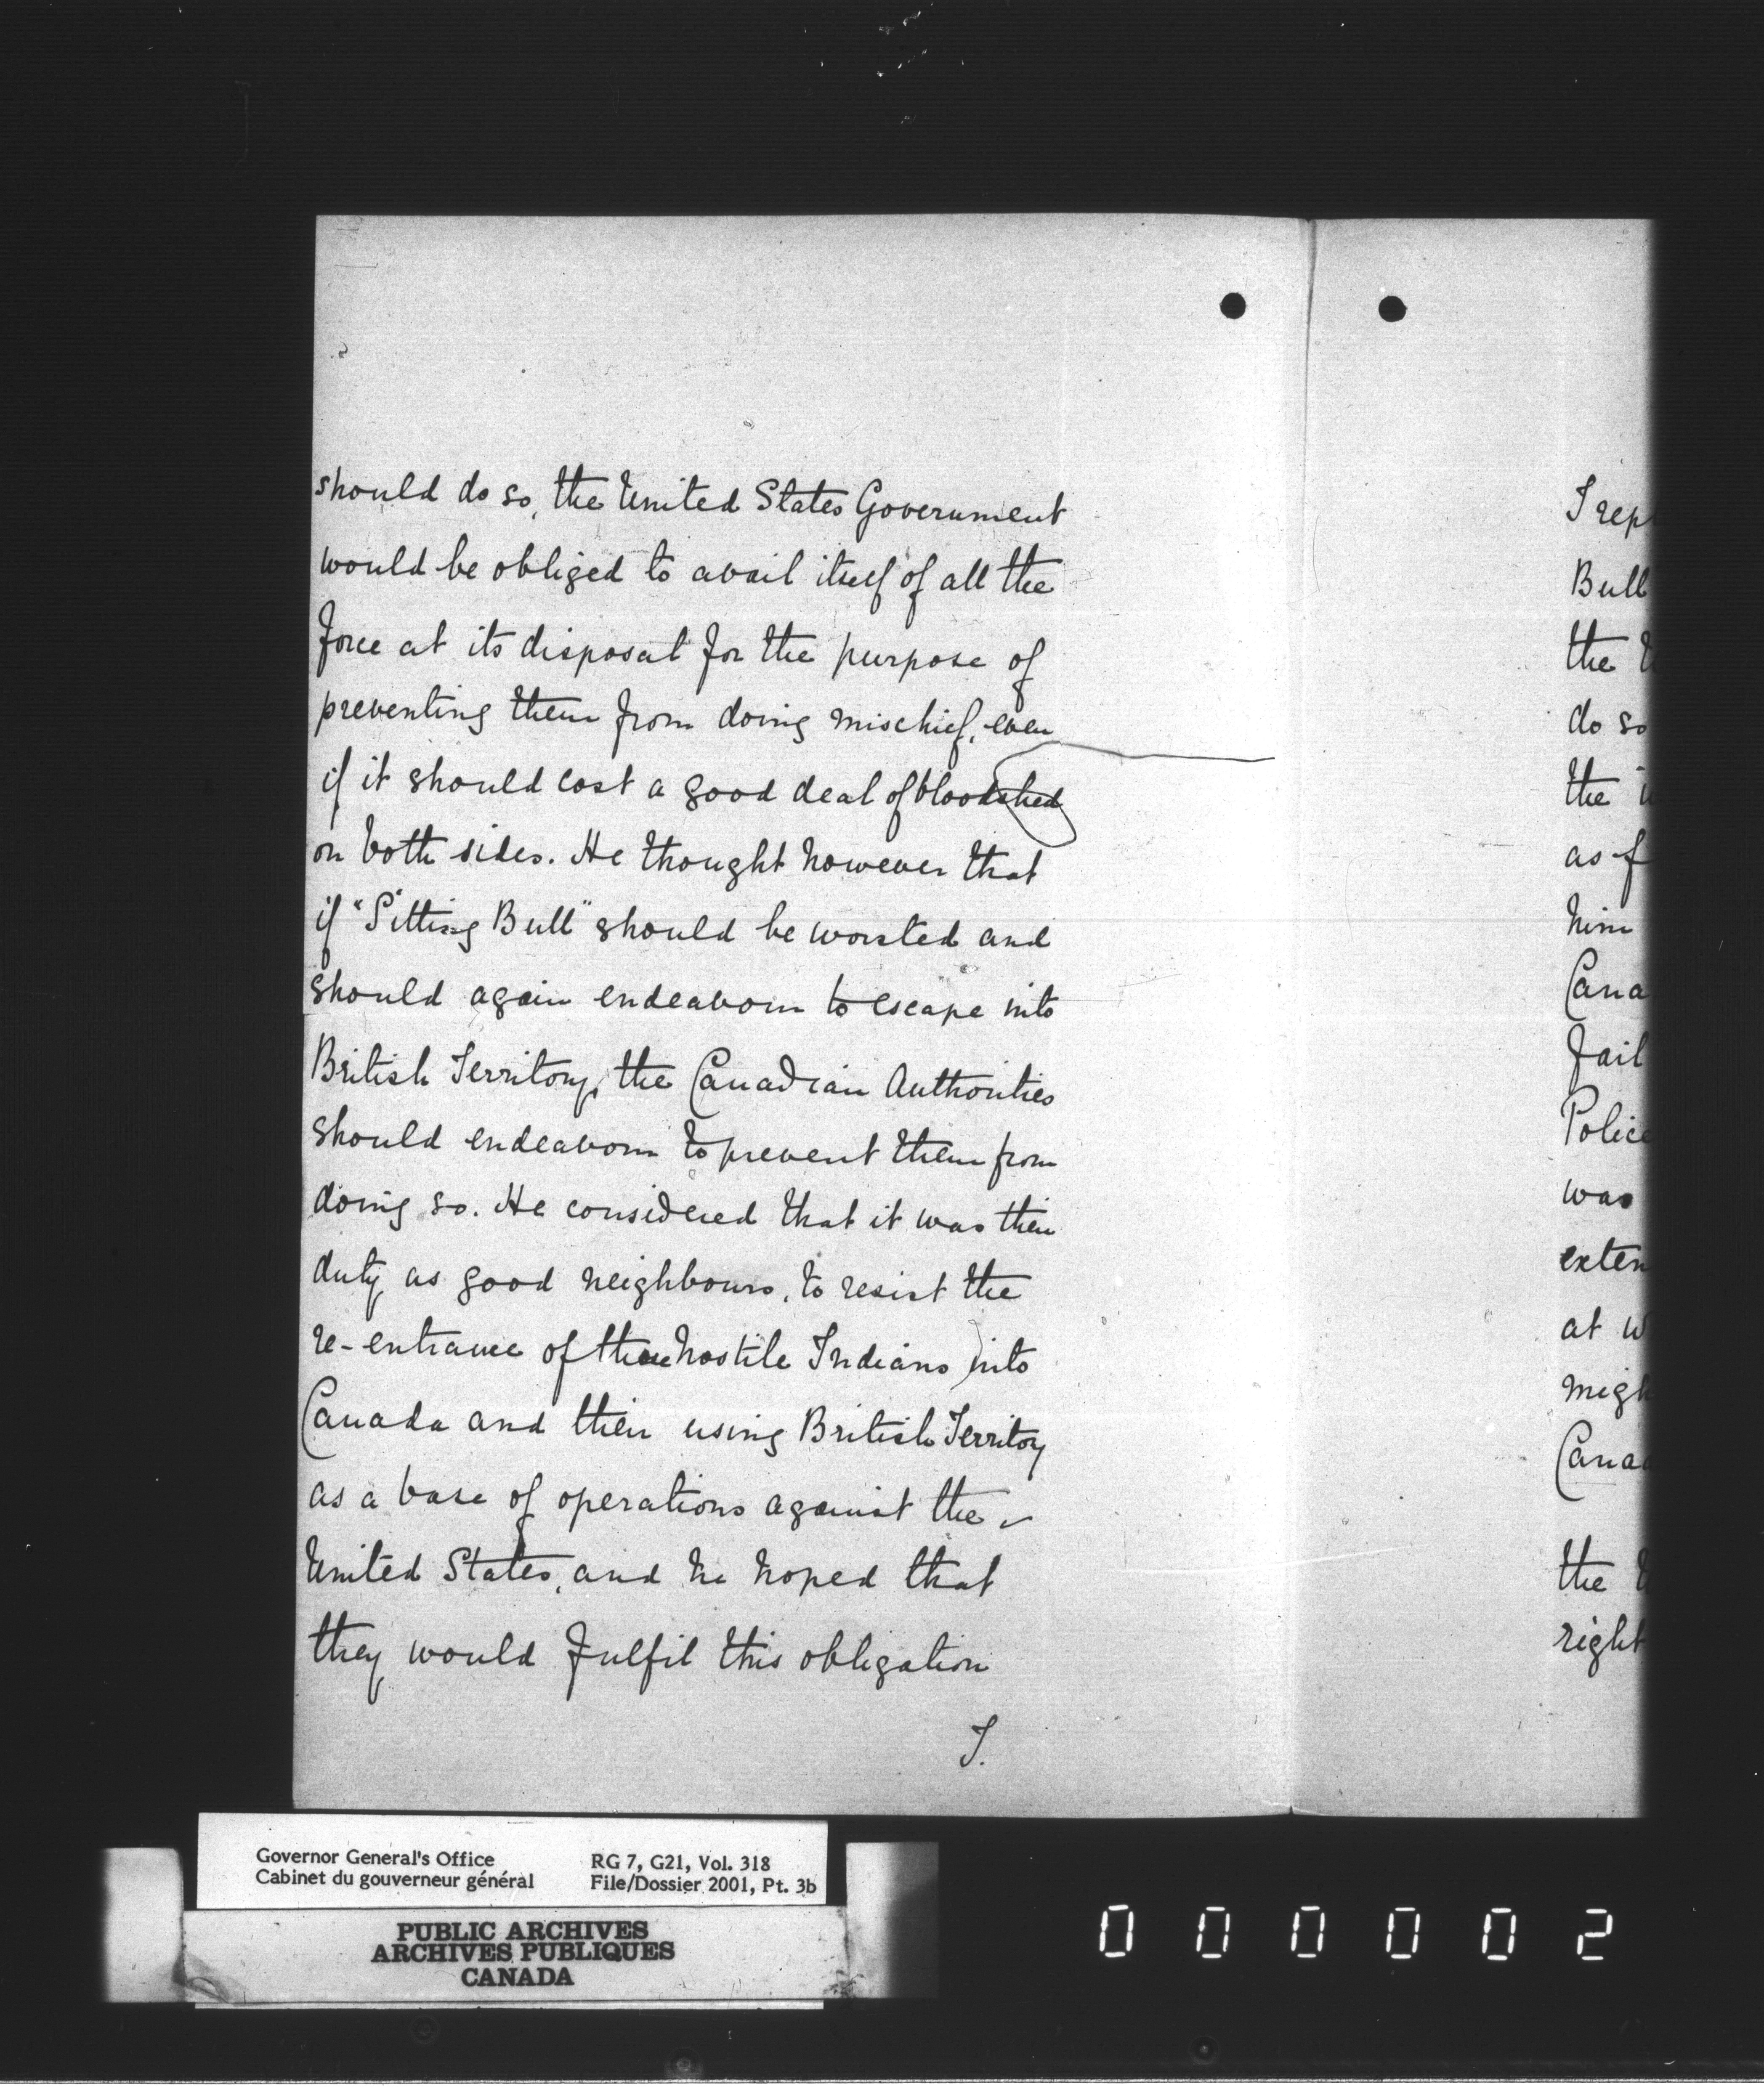 should do so, the United States Government
would be obliged to avail itself of all the
force at its disposal for the purpose of
preventing them from doing mischief, even
if it should cost a good deal of bloodshed
on both sides. He thought however that
if "Sitting Bull" should be worsted and
should again endeavour to escape into
British Territory, the Canadian Authorities
should endeavour to prevent them from
doing so. He considered that it was their
duty as good neighbours, to resist the
re-entrance of these hostile Indians into
Canada and their using British Territory
as a base of operations against the
United States, and he hoped that
they would fulfil this obligation
I.
I rep
Bull
the U
do so
the
as f
him
Cana
fail
Police
was
exten
at w
migh
Canad
the U
right
Governor General's Office
Cabinet du gouverneur général
RG 7, G21, Vol. 318
File/Dossier 2001, Pt. 3b
PUBLIC ARCHIVES
ARCHIVES PUBLIQUES
CANADA
000002